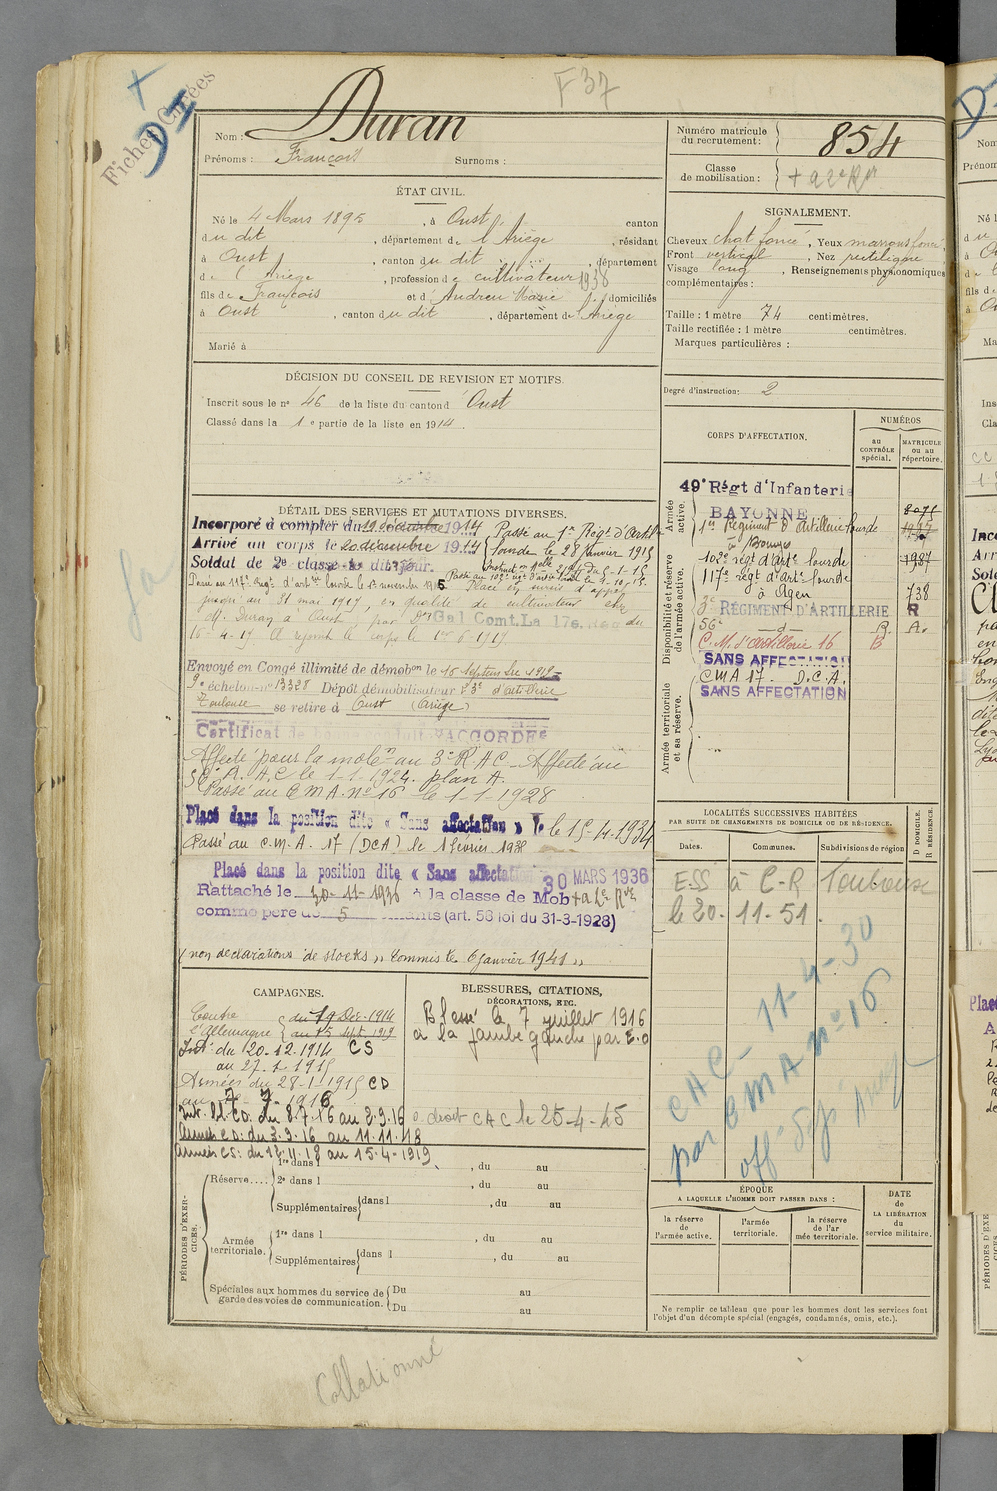 F 37
Fiches Carées
DI
Nom : Duran
Prénoms : François Surnoms :
Numéro matricule du recrutement : 854
Classe de mobilisation :
ÉTAT CIVIL.
Né le 4 Mars 1895, à Oust canton
du dit, département de l'Ariège, résidant
à Oust, canton du dit, département
de l'Ariège, profession de cultivateur 1938
fils de François et d'Andreu Marie domiciliés
à Oust, canton du dit, département de l'Ariège
Marié à
SIGNALEMENT.
Cheveux chat foncé, Yeux marrons foncé
Front vertical, Nez rectiligne
Visage long, Renseignements physionomiques
complémentaires :
Taille : 1 mètre 74 centimètres.
Taille rectifiée : 1 mètre centimètres.
Marques particulières :
Degré d'instruction : 2
DÉCISION DU CONSEIL DE REVISION ET MOTIFS.
Inscrit sous le no 46 de la liste du canton d'Oust
Classé dans la 1e partie de la liste en 1914.
DÉTAIL DES SERVICES ET MUTATIONS DIVERSES.
Incorporé à compter du 19 décembre 1914
Arrivé au corps le 20 décembre 1914
Soldat de 2e classe le dit jour.
Passé au 1er Régt d'Artillie
lourde le 28 Janvier 1915
Passé au 117e Régt d'artie lourde le 1er novembre 1915
Placé en sursis d'appel
jusqu'au 31 mai 1917, en qualité de cultivateur chez
M. Duran à Oust, par Gal Comt. La 17e du
16-4-17 Il rejoint le corps le 1er 6-1917
Envoyé en Congé illimité de démobon le 16 Septembre 1919
9e échelon no 13328 Dépôt démobilisateur 3e d'artillerie
Toulouse se retire à Oust (Ariège)
Certificat de bonne conduite "ACCORDÉ"
Affecté pour la mobon au 3e R.A.C. Affecté au
56e R. A. C le 1-1-1924. plan A.
Passé au C M A. No 16 le 1-1-1928
Placé dans la position dite « Sans affectation » le 15-4-1934
Passé au C.M.A. 17 (DCA) le 1 février 1938
Placé dans la position dite « Sans affectation 30 MARS 1936
Rattaché le 30-11-1936 à la classe de Mob
comme père de 5 enfants (art. 58 loi du 31-3-1928)
(non déclarations de stocks » commis le 6 janvier 1941 »
CORPS D'AFFECTATION.
NUMÉROS
au CONTRÔLE spécial.
MATRICULE ou au répertoire.
Armée active.
49e Régt d'Infanterie
BAYONNE
1er Régiment d'Artillerie lourde
à Bourges
Disponibilité et réserve de l'armée active.
102e régt d'Arte lourde 1987
117e régt d'Arte lourde
à Agen 738
3e RÉGIMENT D'ARTILLERIE R
56e d R. A.
C. M. d'artillerie 16 B
SANS AFFECTATION
CMA 17. D.C.A.
SANS AFFECTATION
Armée territoriale et sa réserve.
LOCALITÉS SUCCESSIVES HABITÉES
PAR SUITE DE CHANGEMENTS DE DOMICILE OU DE RÉSIDENCE.
Dates. Communes. Subdivisions de région
D DOMICILE. R RÉSIDENCE.
ESS à C-R Toulouse
le 20-11-51.
CAC - 11-4-30
par CMA no 16
CAMPAGNES.
Contre l'Allemagne du 19 Déc. 1914
au 15 sept. 1919
Int. du 20-12-1914 CS
au 27-1-1915
Armées du 28-1-1915 CD
au 7-7-1916
Int. bl. CD. du 8.7.16 au 2.9.16
Armées CD. du 3.9.16 au 11.11.18
Armées CS. du 12.11.18 au 15.4.1919
BLESSURES, CITATIONS,
DÉCORATIONS, ETC.
Blessé le 7 juillet 1916
à la jambe gauche par E.O
a droit CAC le 25-4-45
PÉRIODES D'EXERCICES.
Réserve.... 1re dans l , du au
2e dans l , du au
Supplémentaires dans l , du au
Armée territoriale. 1re dans l , du au
Supplémentaires dans l , du au
Spéciales aux hommes du service de garde des voies de communication. Du au
Du au
ÉPOQUE
A LAQUELLE L'HOMME DOIT PASSER DANS :
la réserve de l'armée active.
l'armée territoriale.
la réserve de l'armée territoriale.
DATE de LA LIBÉRATION du service militaire.
Ne remplir ce tableau que pour les hommes dont les services font
l'objet d'un décompte spécial (engagés, condamnés, omis, etc.).
Collationné